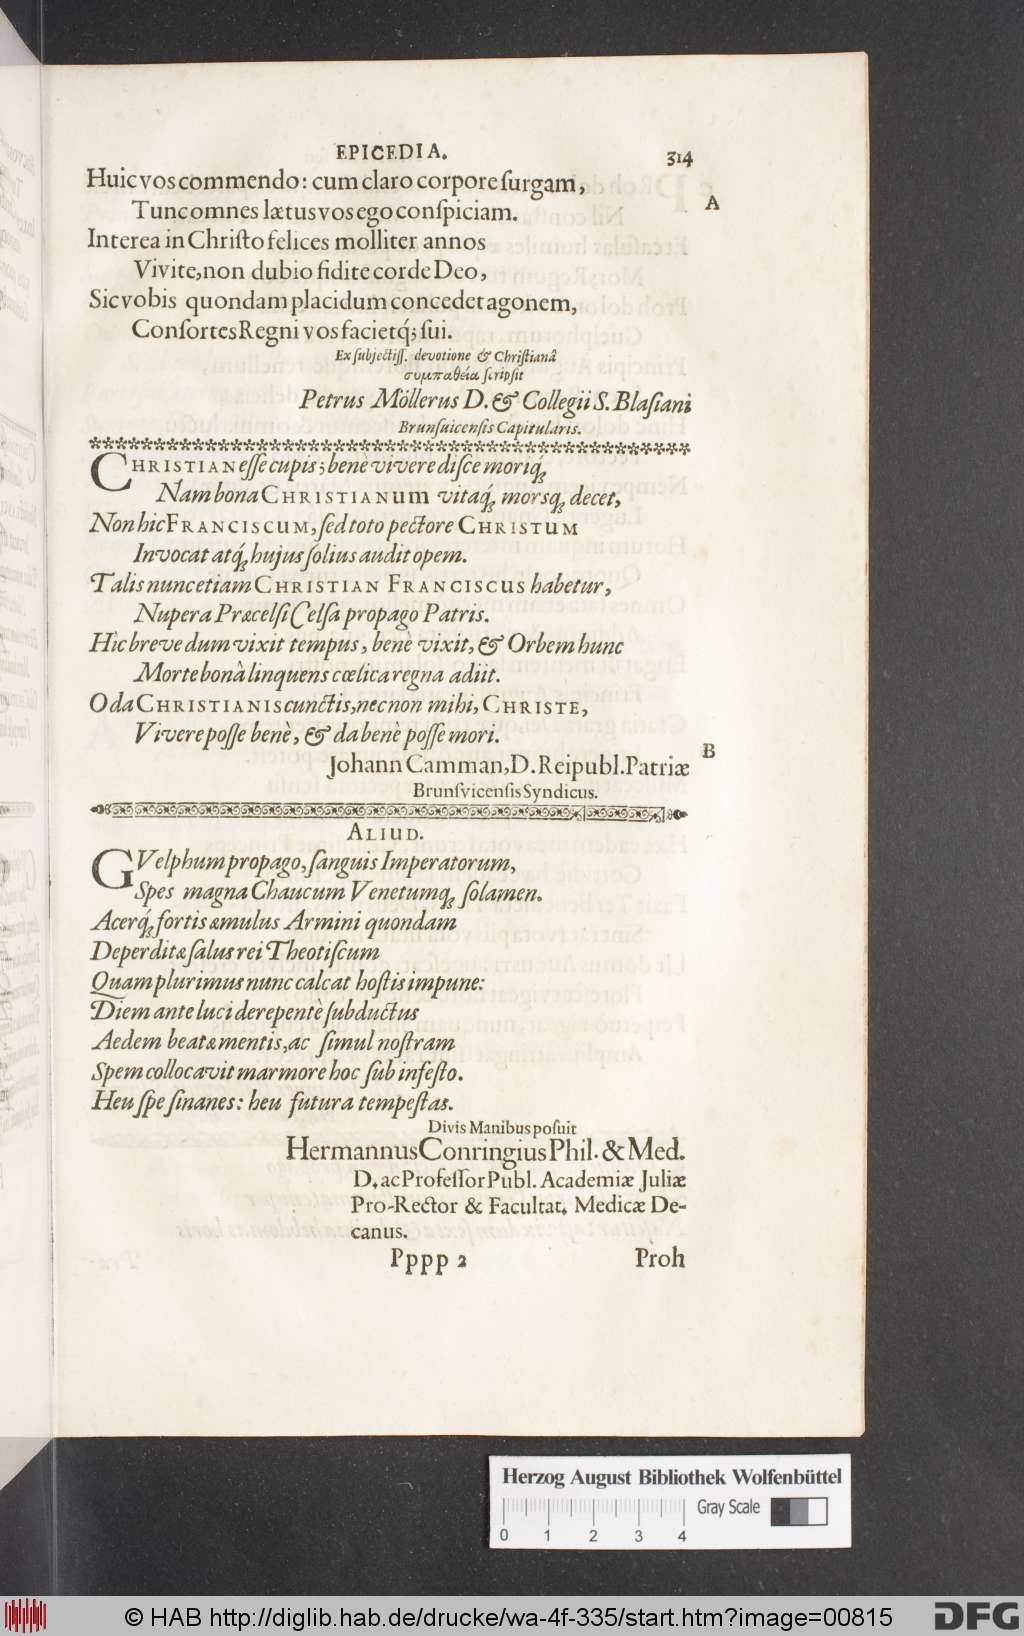 EPICEDIA. 314
Huic vos commendo: cum claro corpore ſurgam,
A
Tunc omnes lætus vos ego conſpiciam.
Interea in Chriſto felices molliter annos
Vivite, non dubio fidite corde Deo,
Sic vobis quondam placidum concedet agonem,
Conſortes Regni vos facietq́; ſui.
Ex ſubjectiſſ. devotione & Chriſtianâ
συμπαθείᾳ ſcripſit
Petrus Möllerus D. & Collegii S. Blaſiani
Brunſuicenſis Capitularis.
CHRISTIAN eſſe cupis; benè vivere diſce moriq́;
Nam bona CHRISTIANUM vitaq́; morsq́; decet,
Non hic FRANCISCUM, ſed toto pectore CHRISTUM
Invocat atq́; hujus ſolius audit opem.
Talis nunc etiam CHRISTIAN FRANCISCUS habetur,
Nupera Præcelſi Celſa propago Patris.
Hic breve dum vixit tempus, benè vixit, & Orbem hunc
Morte bonâ linquens cœlica regna adiit.
O da CHRISTIANIS cunctis, nec non mihi, CHRISTE,
Vivere poſſe benè, & da benè poſſe mori.
B
Johann Camman, D. Reipubl. Patriæ
Brunſvicenſis Syndicus.
ALIUD.
GVelphum propago, ſanguis Imperatorum,
Spes magna Chaucum Venetumq; ſolamen.
Acerq́; fortis æmulus Armini quondam
Deperditæ ſalus rei Theotiſcum
Quam plurimus nunc calcat hoſtis impune:
Diem ante luci derepentè ſubductus
Aedem beatæ mentis, ac ſimul noſtram
Spem collocavit marmore hoc ſub infeſto.
Heu ſpe ſinanes: heu futura tempeſtas.
Divis Manibus poſuit
Hermannus Conringius Phil. & Med.
D. ac Profeſſor Publ. Academiæ Juliæ
Pro-Rector & Facultat. Medicæ De-
canus.
Pppp 2 Proh
Herzog August Bibliothek Wolfenbüttel
Gray Scale
0 1 2 3 4
© HAB http://diglib.hab.de/drucke/wa-4f-335/start.htm?image=00815 DFG